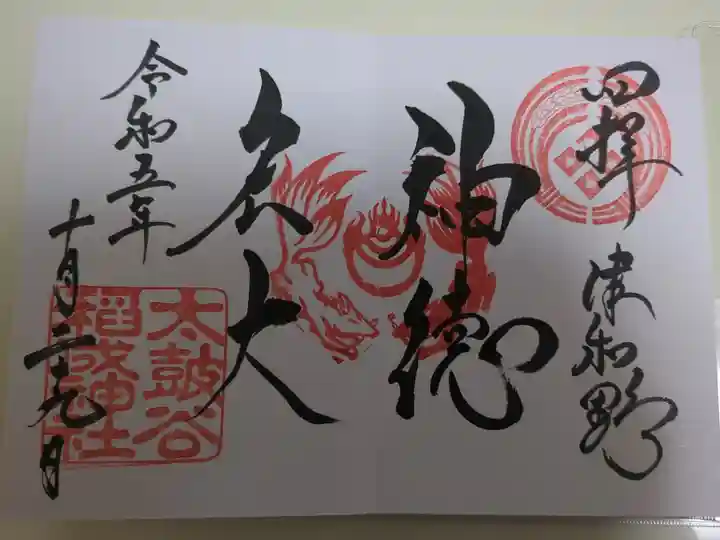 四拝
津和野
神徳
宏大
令和五年
十月二十九日
太鼓谷
稲成神社